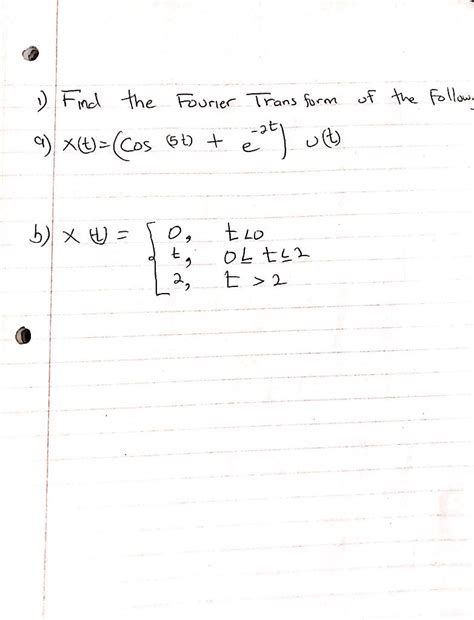 1) Find the Fourier Transform of the follow.
a) x(t)=(cos (5t) + e^{-2t}) u(t)
b) x(t) = { 0, t<0
t, 0≤t≤2
2, t>2